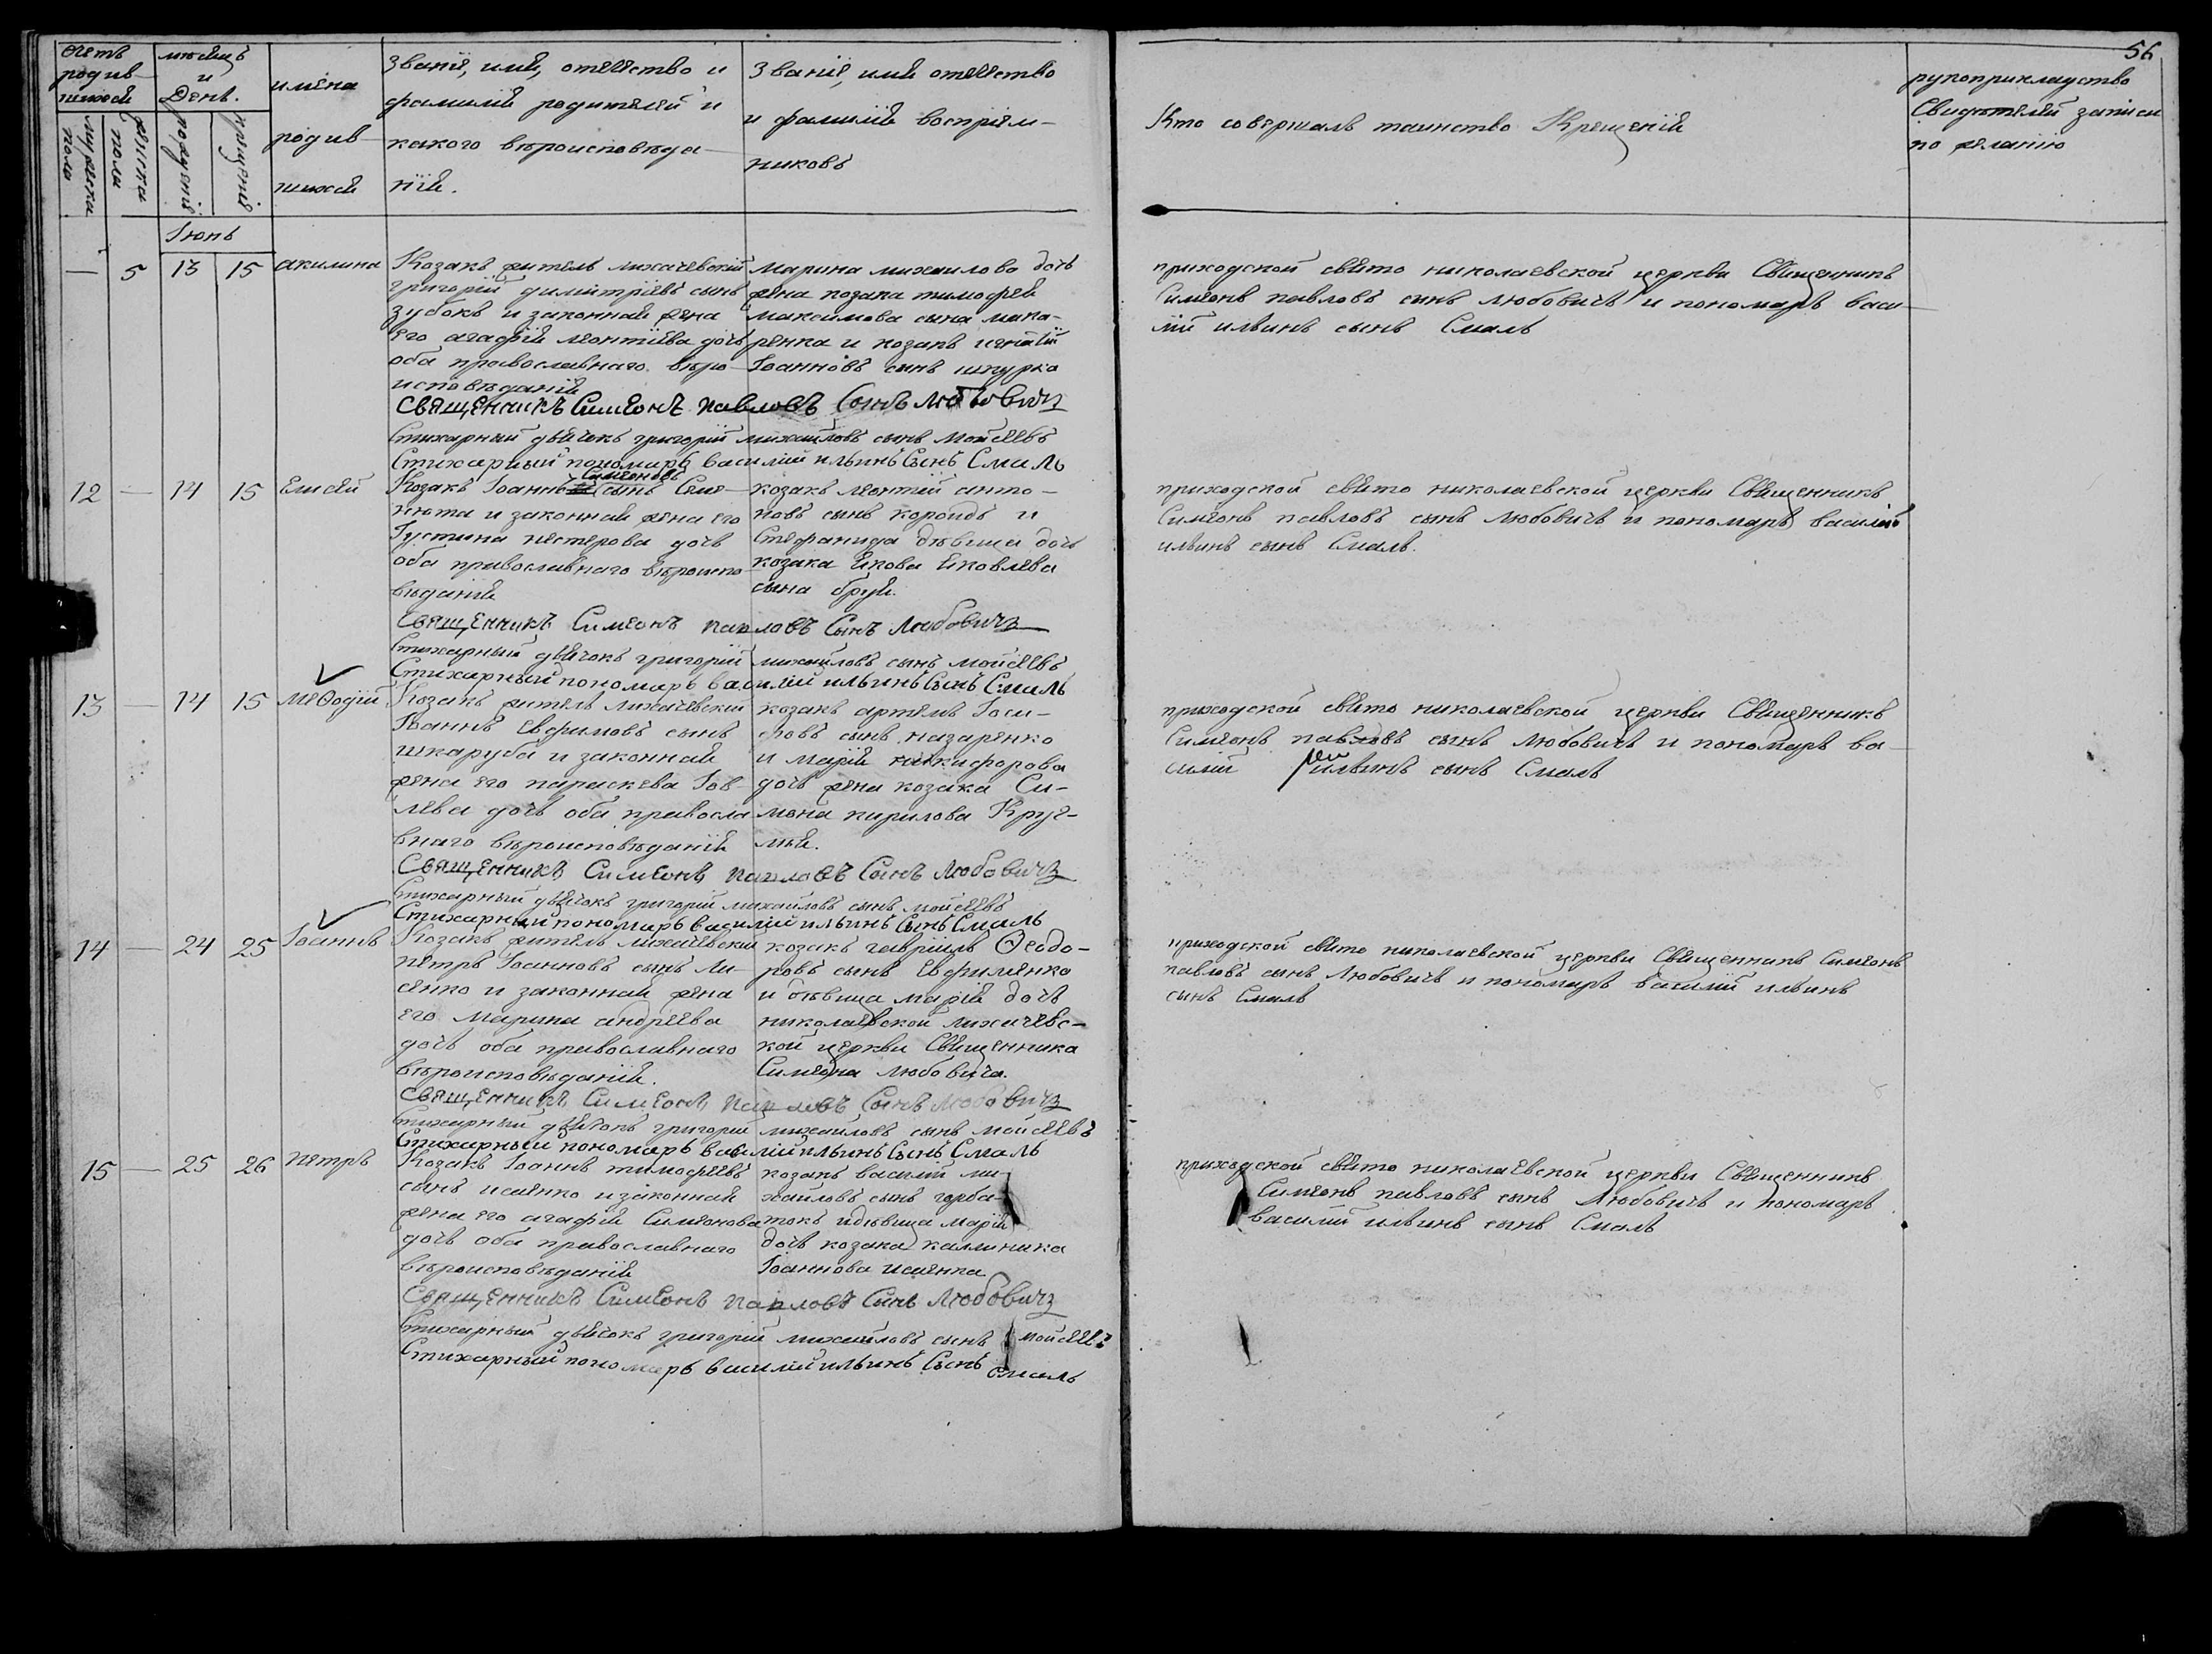 56
счетъ
родив-
шихся
мужеска
пола
женска
пола
мѣсяцъ
и
День.
рожденія
крещенія
имена
родив-
шихся
Званіе, имя, отечество и
фамилія родителей и
какого вѣроисповѣда-
нія.
Званіе, имя отечество
и фамилія воспріем-
никовъ
Кто совершалъ таинство Крещенія
рукоприкладство
Свидѣтелей записи
по желанію
Іюнь
— 5 13 15 акилина
Козакъ житель лихачевскій
григорій димитріевъ сынъ
зубокъ и законная жена
его агафія леонтіева дочь
оба православнаго вѣро-
исповѣданія
марина михаилова дочь
жена козака тимофея
максимова сына мака-
ренка и козакъ игнатій
Іоанновъ сынъ шкурко
приходской свято николаевской церкви Священникъ
Симеонъ павловъ сынъ любовичъ и пономарь васи-
лій ильинъ сынъ Смаль
Священникъ Симеонъ павловъ Сынъ Любовичъ
Стихарный дьячокъ григорій михайловъ сынъ Мойсеевъ
Стихарный пономарь василій ильинъ Сынъ Смаль
12 — 14 15 Елисей
Симеоновъ
Козакъ Іоаннъ сынъ Семе-
нюта и законная жена его
Іустина нестерова дочь
оба православнаго вѣроиспо-
вѣданія
козакъ леонтій анто-
новъ сынъ короидъ и
Стефанида дѣвица дочь
козака Якова Яковлева
сына бруя.
приходской свято николаевской церкви Священникъ
Симеонъ павловъ сынъ любовичъ и пономарь василій
ильинъ сынъ Смаль.
Священникъ Симеонъ павловъ Сынъ Любовичъ
Стихарный дьячокъ григорій михайловъ сынъ мойсеевъ
Стихарный пономарь василій ильинъ Сынъ Смаль
13 — 14 15 Меѳодій
Козакъ житель лихачевскій
Іоаннъ Евфимовъ сынъ
шкаруба и законная
жена его параскева Іов-
лева дочь оба правосла-
внаго вѣроисповѣданія
козакъ артемъ Іоси-
фовъ сынъ назаренко
и марія никифорова
дочь жена козака Си-
мона кирилова Круг-
лыя.
приходской свято николаевской церкви Священникъ
Симеонъ павловъ сынъ любовичъ и пономарь ва-
силій ильинъ сынъ Смаль
Священникъ Симеонъ павловъ Сынъ Любовичъ
Стихарный дьячокъ григорій михайловъ сынъ мойсеевъ
Стихарный пономарь василій ильинъ Сынъ Смаль
14 — 24 25 Іоаннъ
Козакъ житель лихачевскій
петръ Іоанновъ сынъ ли-
сенко и законная жена
его Марина андреева
дочь оба православнаго
вѣроисповѣданія.
козакъ гавріилъ Ѳеодо-
ровъ сынъ Евфименко
и дѣвица марія дочь
николаевской лихачевс-
кой церкви Священника
Симеона любовича.
приходской свято николаевской церкви Священникъ Симеонъ
павловъ сынъ Любовичъ и пономарь василій ильинъ
сынъ Смаль
Священникъ Симеонъ павловъ Сынъ Любовичъ
Стихарный дьячокъ григорій михайловъ сынъ мойсеевъ
Стихарный пономарь василій ильинъ Сынъ Смаль
15 — 25 26 петръ
Козакъ Іоаннъ тимофеевъ
сынъ исаенко и законная
жена его агафія Симеонова
дочь оба православнаго
вѣроисповѣданія
козакъ василій ми-
хайловъ сынъ горба-
токъ и дѣвица марія
дочь козака каллиника
Іоаннова исаенка
приходской свято николаевской церкви Священникъ
Симеонъ павловъ сынъ Любовичъ и пономарь
василій ильинъ сынъ Смаль
Священникъ Симеонъ павловъ Сынъ Любовичъ
Стихарный дьячокъ григорій михайловъ сынъ мойсеевъ
Стихарный пономарь василій ильинъ Сынъ Смаль